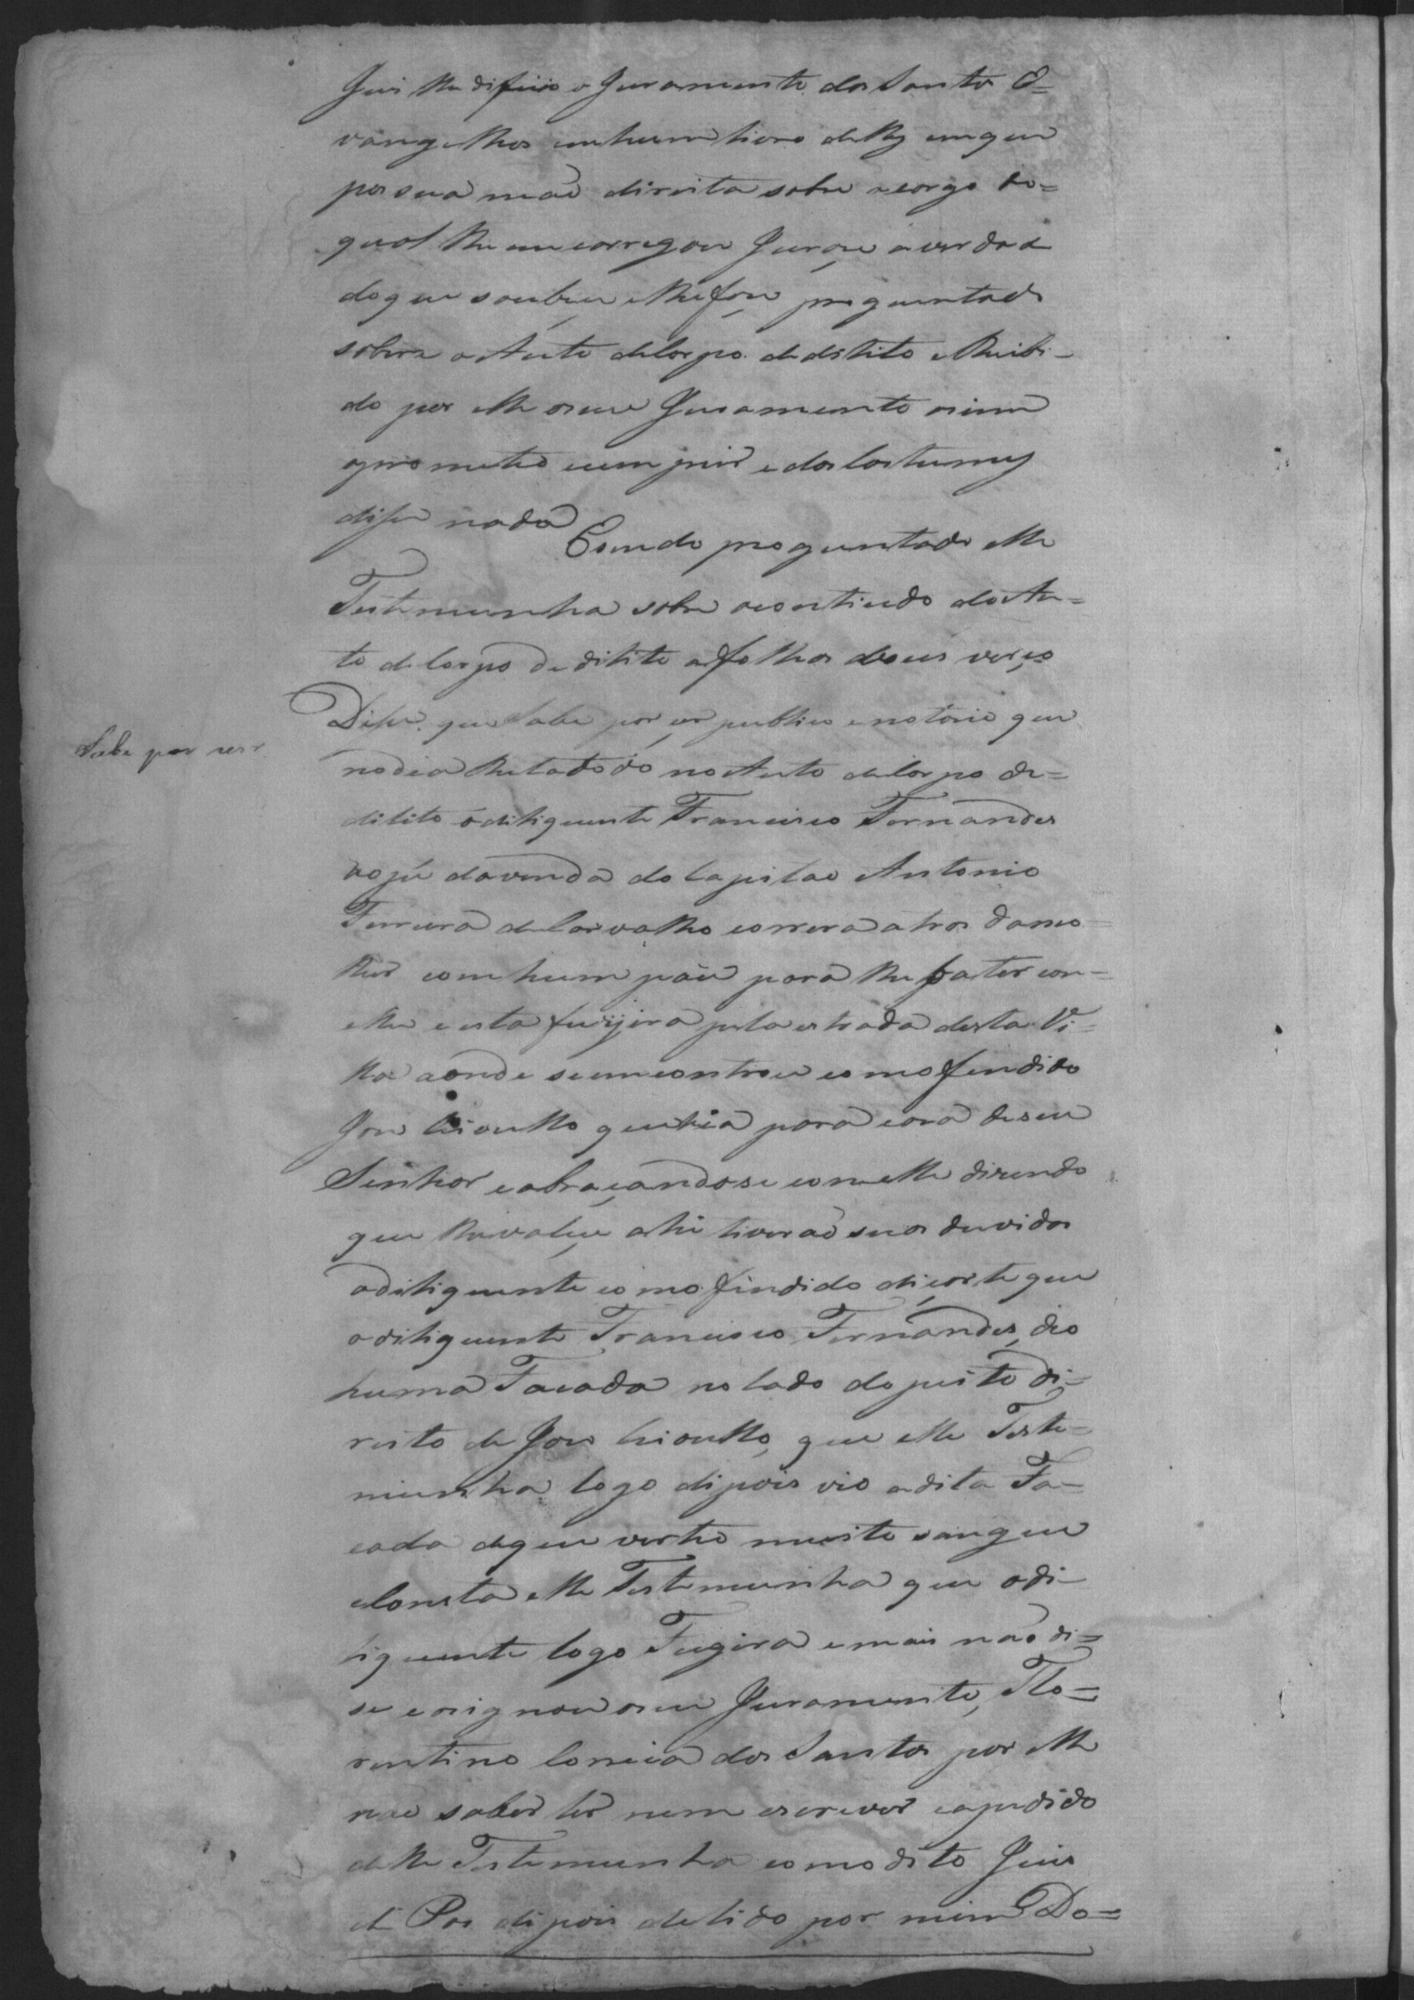 Juis lhe difirio o Juramento dos Santos E=
vangelhos em hum livro delles em que
pos sua mao direita sobre cargo do=
qual lhe emcarregou Juraçe a verdade
do que soubeçe e lhe foçe preguntado
sobre o Auto de Corpo de delito e Recibi-
do por elle o seu Juramento acim
o prometeo cumprir e dos Costumes
dise nada
E sendo preguntado elle
Testemunha sobre o contiudo do Au=
to de Corpo de dilito a folhas duas verço
Dise que Sabe por ser publico e notorio que
no dia Relatado no Auto de Corpo de=
dilito o diliquente Francisco Fernandes
ao pé da venda do Capitao Antonio
Ferreira de Carvalho correra atras da mo=
lher com hum páu para lhe bater com=
elle e esta fugira pela estrada desta Vi=
lla aonde se emcontrou com o fendido
Joze Crioullo que hia para caza de seu
Senhor e abraçandose com elle dizendo
que lhe valeçe ahi tiverao suas duvidas
o diliquente com o findido di çorte que
o diliquente Francisco Fernandes deo
huma Facada no lado do peito di=
reito de Joze Crioullo, que elle Teste=
munha logo dipois vio a dita Fa=
cada de que verteo muito sangue
e Consta elle Testemunha que o di-
liquente logo Fugira e mais não di=
se e asignou o seu Juramento, Flo=
rentino Correia dos Santos por elle
nao saber ler nem escrever e a pedido
delle Testemunha com o dito Juis
di Pas dipois de lido por mim Do=
Sabe por ver